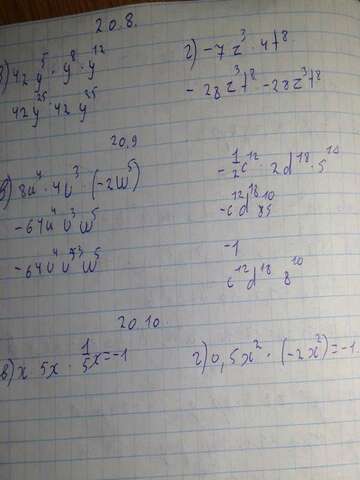 20.8.
в) 42 y⁵ · y⁸ · y¹²
42y²⁵ · 42 y²⁵
г) -7z³ · 4t⁸
- 28z³t⁸ -28z³t⁸
20.9
8u⁴ · 4v³ · (-2w⁵)
-64u⁴v³w⁵
-64u⁴v³w⁵
-½c¹² · 2d¹⁸ ·
-c¹²d¹⁸
-1
c¹²d¹⁸ 8¹⁰
20.10
в) x 5x · 1/5x = -1
г) 0,5x² · (-2x²) = -1